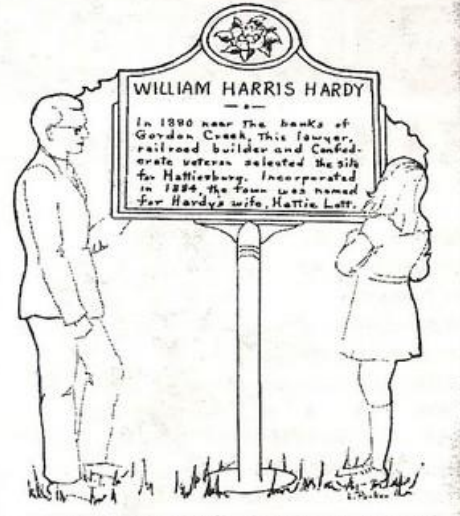 WILLIAM HARRIS HARDY
In 1880 near The banks of
Gordon Creek, This lawyer,
railroad builder and Confed-
erate veteran selected the site
for Hattiesburg. Incorporated
in 1884, the town was named
for Hardy's wife, Hattie Lott.